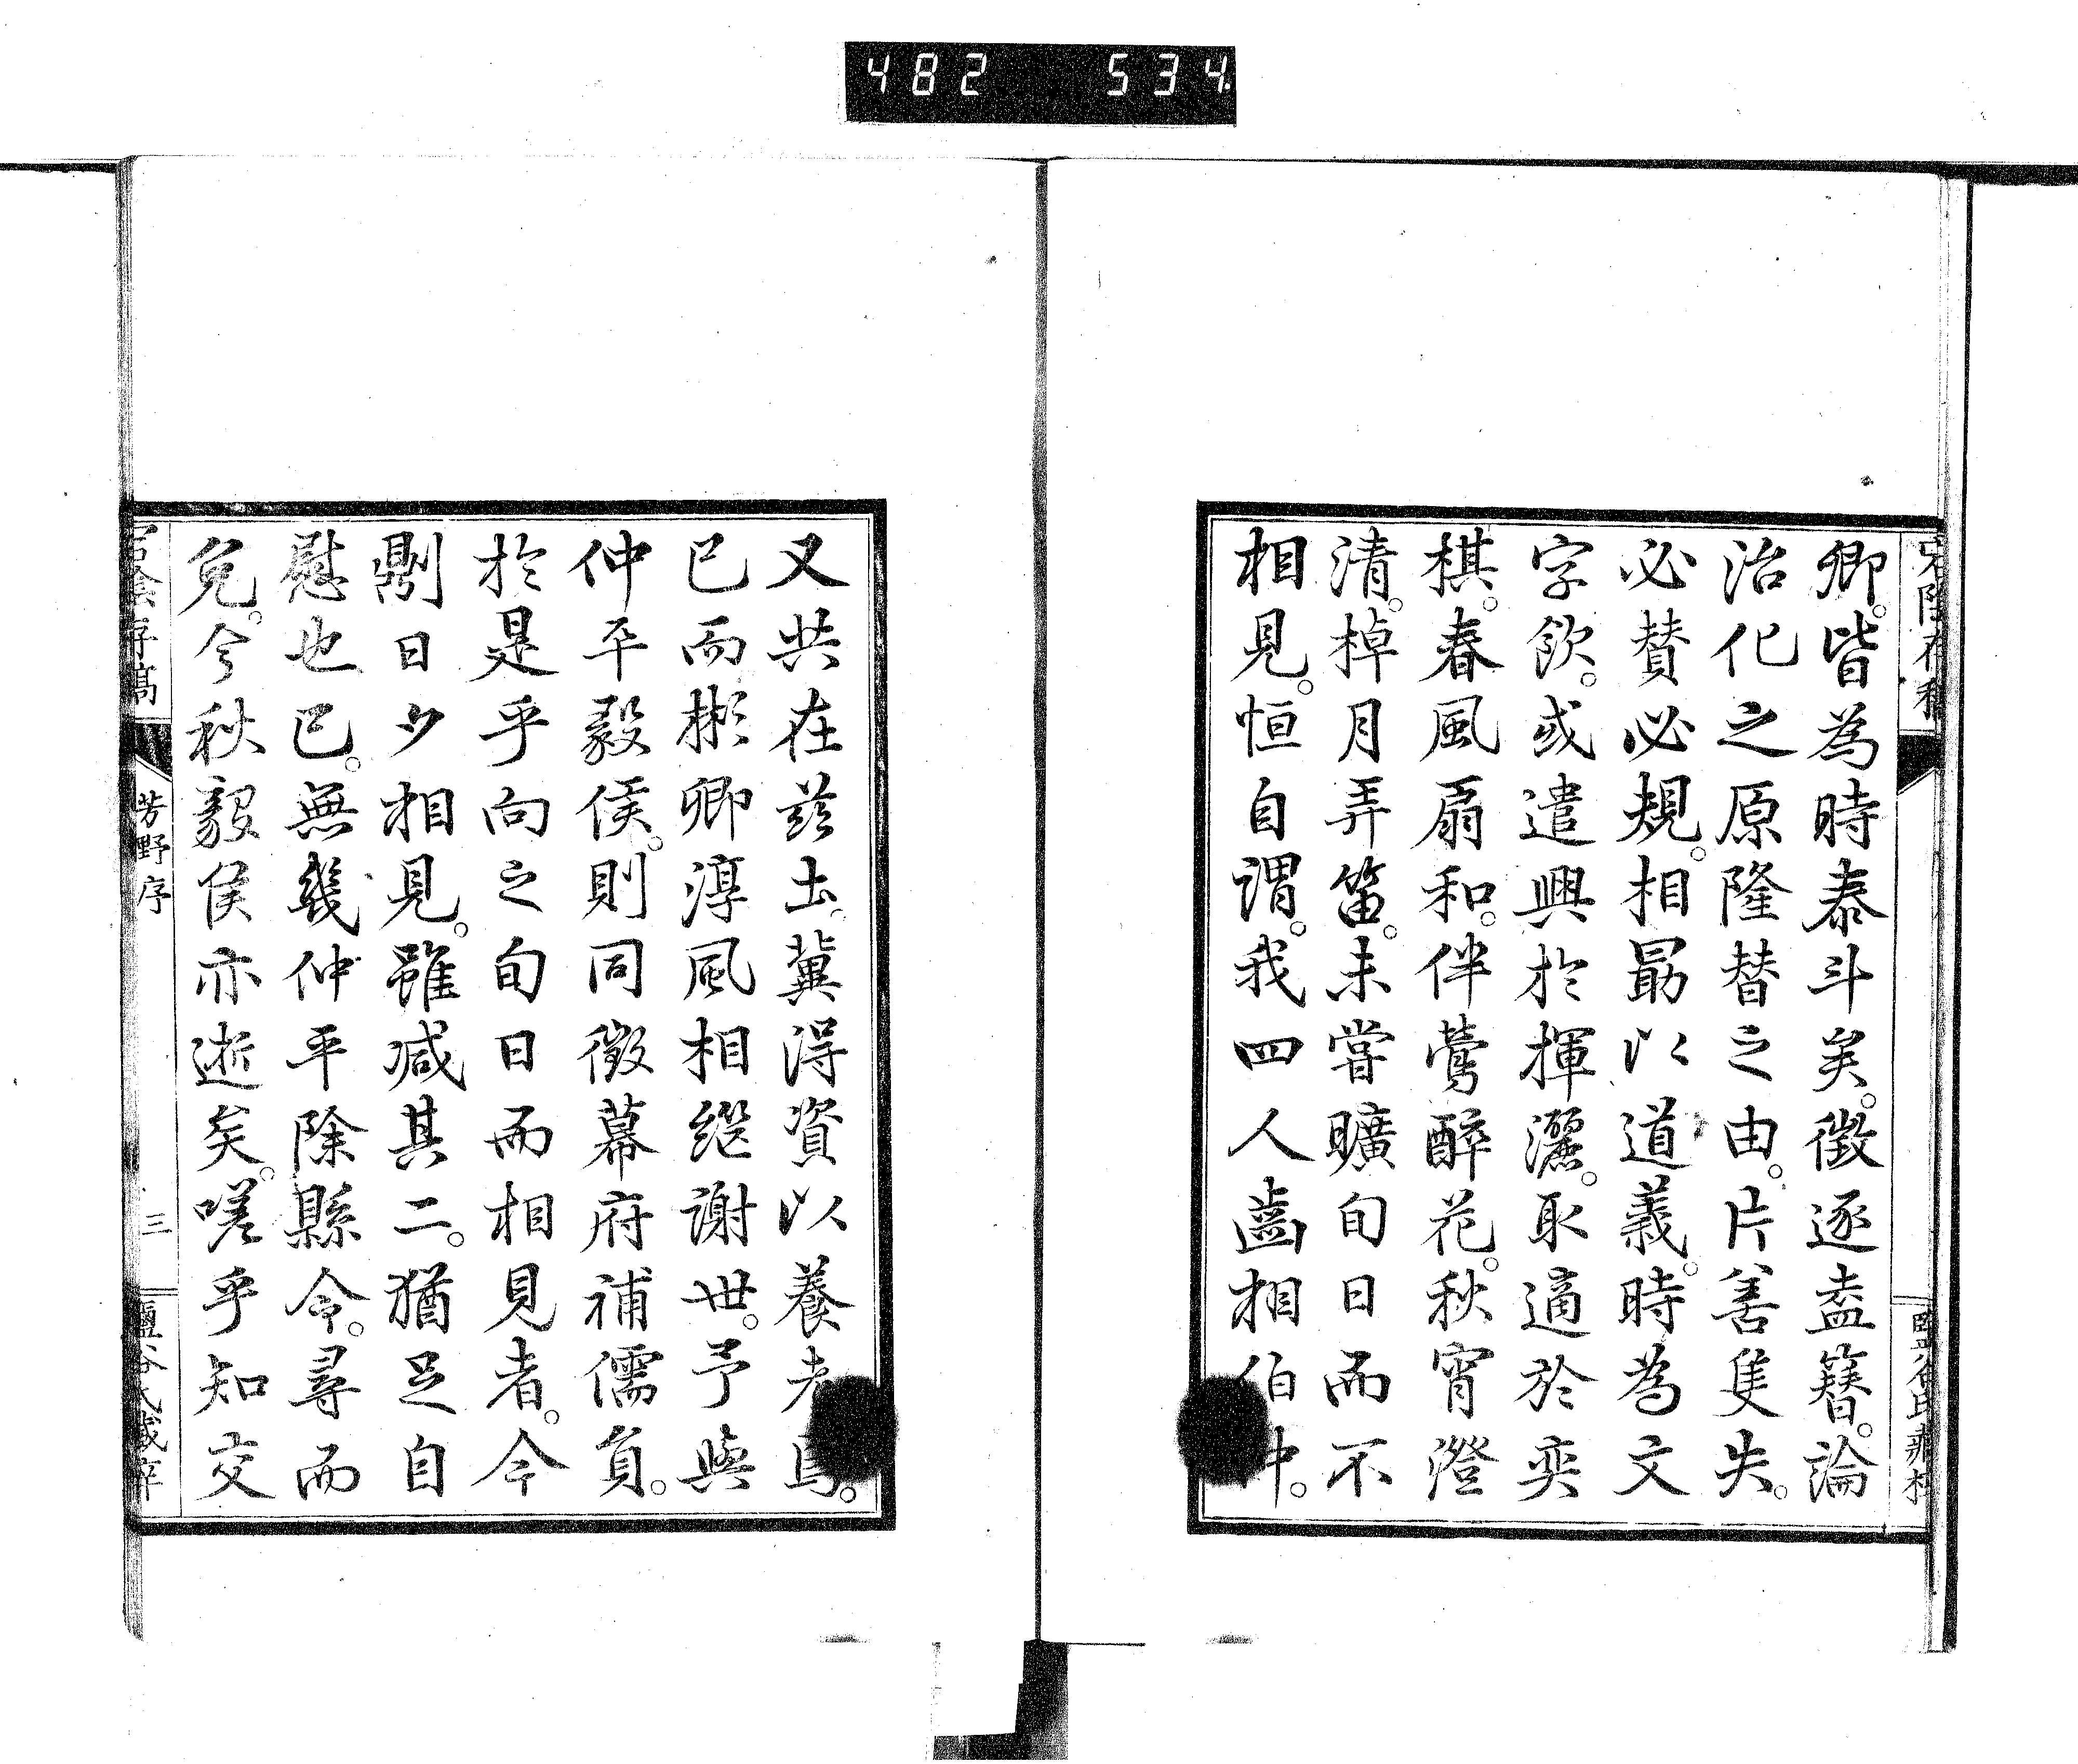 482 534
卿。皆為時泰斗矣。徵逐盍簪。論
治化之原隆替之由。片善隻失。
必賛必規。相勗以道義。時為文
字飲。或遣興於揮灑。取適於奕
棋。春風扇和。伴鶯醉花。秋宵澄
清。棹月弄笛。未嘗曠旬日而不
相見。恒自謂。我四人齒相伯仲。
又共在玆土。冀得資以養老焉。
已而彬卿淳風相継謝世。予與
仲平毅侯。則同徵幕府補儒員。
於是乎向之旬日而相見者。今
劘日少相見。雖减其二。猶足自
慰也已。無幾仲平除縣令。尋而
免。今秋毅侯亦逝矣。嗟乎知交
宕陰存稿
芳野序
三